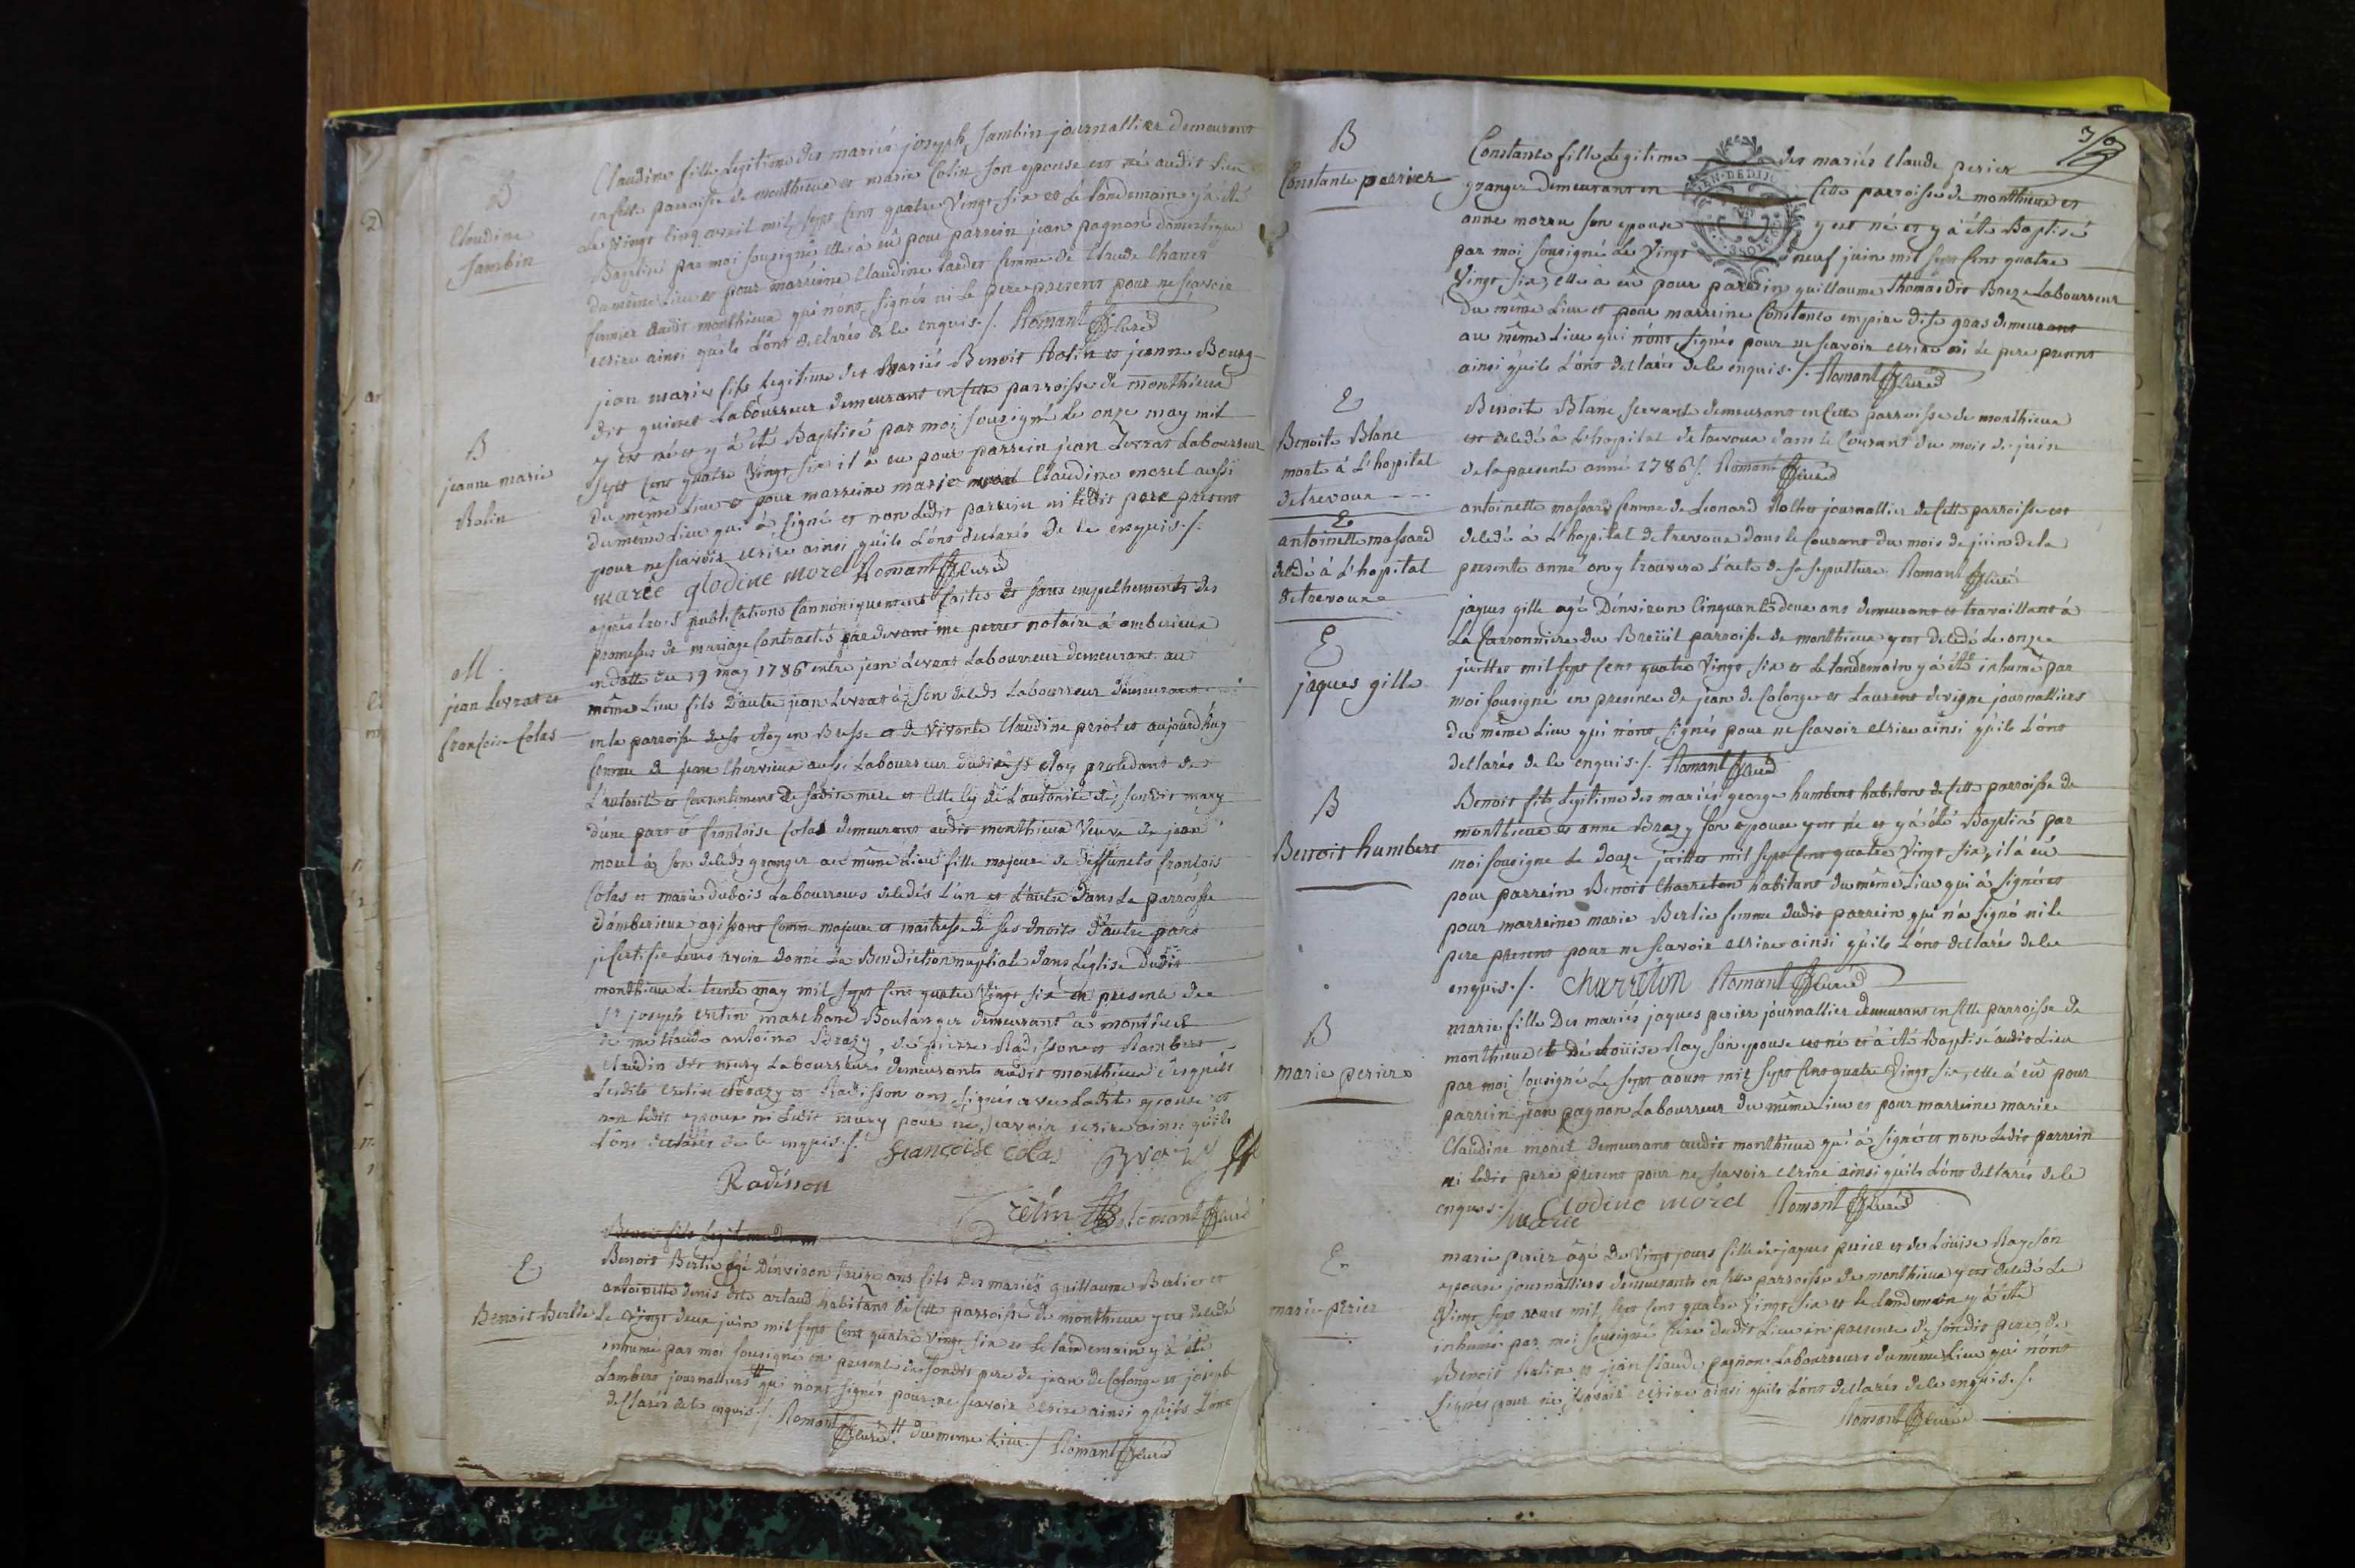 B
Claudine
Jambin
Claudine fille legitime des mariés joseph Jambin journallier demeurant
en cette parroisse de monthieux et marie Colin son epouse est né audit lieu
Le vingt cinq avril mil sept cent quatre vingt six et le landemain y a été
Baptisé par moi sousigné elle à eû pour parrein jean pagnon domestique
du même Lieu et pour marreine Claudine femme de Claude
fermier dudit monthieux qui nont signés ni le pere present pour ne scavoir
ecrire ainsi quils l'ont declarés de le enquis ./. Romant Curé
B
jeanne marie
Rolin
jean marie fils legitime des Mariés Benoit Rolin et jeanne Bourg
dit guinet Labourreur demeurant en cette parroisse de monthieux
y est né et y à été Baptisé par moi sousigné le onze may mil
sept cent quatre Vingt six il à eu pour parrein jean Levrat Labourreur
du même Lieu et pour marreine marie Claudine morel aussi
du même Lieu qui à signé et non Ledit parrein ni ledit pere present
pour ne scavoir ecrire ainsi quils L'ont declarés de le enquis ./.
marie glodine morel Romant Curé
M.
jean Levrat et
francoise Colas
après trois publications Cannoniquement faites et sans empechements des
promesses de mariage Contractés pardevant me perret notaire à amberieux
en datte du 19 may 1786 entre jean Levrat Labourreur demeurant au
même Lieu fils d'autre jean Levrat à son décéds Labourreur demeurant
en la parroisse de st Eloy en Bresse et de vivante Claudine priolet aujourd'huy
femme de jean Chervieux aussi Labourreur dudit st eloy procedant de
L'autorité et consentiment de sadite mere et celle cy de L'autorité de sondit mary
d'une part et francoise Colas demeurant audit monthieux Veuve de jean
morel à son décéds granger au même Lieu fille majeure de deffuncts francois
Colas et marie dubois Labourreurs décédés L'un et L'autre dans La parroisse
d'amberieux agissant comme majeure et maitresse de ses droits d'autre part
je certifie Leurs avoir donné La Benediction nuptiale dans L'église dudit
monthieux Le trente may mil sept cent quatre Vingt six en presence de
sr joseph cretin marchand Boulanger demeurant à monthieux
de me Claude antoine Brazy, de pierre Radisson et Rambert
Claudin dit mury Labourreurs demeurants audit monthieux desquels
Lesdits cretin Brazy et Radisson ont signés avec Ladite epouse et
non ledit epoux ni Ledit mury pour ne scavoir ecrire ainsi quils
L'ont declarés de le enquis ./. francoise colas Brazy
Radisson
Cretin Romant Curé
Benoit fils legitime des m
E
Benoit Berlie
Benoit Berlie agé d'environ treize ans fils des mariés guillaume Berlie et
antoinette denis dite artaud habitans de cette parroisse de monthieux y est décédé
Le vingt deux juin mil sept cent quatre vingt six et Le landemain y à été
inhumé par moi sousigné en presence de sondit pere de jean de Colonge et joseph
Lambert journalliers # qui n'ont signés pour ne scavoir ecrire ainsi quils L'ont
declarés de le enquis ./. Romant Curé # du meme Lieu ./. Romant Curé
B
Constante perrier
Constante fille legitime des mariés Claude perier
granger demeurant en cette parroisse de monthieux et
anne morau son epouse y est né et y à été Baptisé
par moi sousigné Le Vingt neuf juin mil sept cent quatre
Vingt six, elle à eu pour parrein guillaume thomas dit Boze Labourreur
Du même Lieu et pour marreine Constante empire dite gras demeurant
au même Lieu qui n'ont signés pour ne scavoir ecrire ni Le pere present
ainsi quils L'ont declarés de le enquis ./. Romant Curé
E
Benoite Blanc
morte à L'hopital
de trevoux
Benoite Blanc servante demeurant en cette parroisse de monthieux
est decedé à L'hopital de trevoux dans le Courant du mois de juin
de la presente anné 1786 ./. Romant Curé
E
antoinette massard
décédé à L'hopital
de trevoux
antoinette massard femme de Leonard Rollet journallier de Cette parroisse est
décédé à L'hopital de trevoux dans le Courant du mois de juin de la
presente anné on y trouvera L'acte de sa sepulture Romant Curé
E
jaques gille
jaques gille agé d'environ Cinquante deux ans demeurant et travaillant à
La Carronniere du Breüil parroisse de monthieux y est décédé Le onze
juillet mil sept cent quatre Vingt six et Le landemain y à été inhumé par
moi sousigné en presence de jean de Colonge et Laurent devigne journalliers
du même Lieu qui n'ont signés pour ne scavoir ecrire ainsi quils L'ont
declarés de le enquis ./. Romant Curé
B
Benoit humbert
Benoit fils legitime des mariés george humbert habitant de Cette parroisse de
monthieux et anne Brazy son epouse y est né et y à été Baptisé par
moi sousigné Le douze juillet mil sept cent quatre Vingt six, il à eû
pour parrein Benoit Charreton habitant du même Lieu qui à signé et
pour marreine marie Berlie femme dudit parrein qui n'a signé ni le
pere present pour ne scavoir ecrire ainsi quils L'ont declarés de le
enquis ./. Charreton Romant Curé
B
marie perier
marie fille Des mariés jaques perier journallier demeurant en cette parroisse de
monthieux et de Loüise Ray son epouse est né et à été Baptisé audit Lieu
par moi sousigné Le sept aoust mil sept cent quatre Vingt six, elle à eû pour
parrein jean pagnon Labourreur du même Lieu et pour marreine marie
Claudine morel demeurant audit monthieux qui à signé et non Ledit parrein
ni ledit pere present pour ne scavoir ecrire ainsi quils L'ont declarés de le
enquis ./. marie Clodine morel Romant Curé
E
marie perier
marie perier agé de Vingt jours fille de jaques perier et de Loüise Ray son
epouse journalliers demeurants en cette parroisse de monthieux y est décédé Le
Vingt sept aoust mil sept cent quatre Vingt six et le landemain y à été
inhumé par moi sousigné Curé dudit Lieu en presence de sondit pere, de
Benoit et jean Claude pagnon Labourreurs du même Lieu qui n'ont
signés pour ne scavoir ecrire ainsi quils L'ont declarés de le enquis ./.
Romant Curé